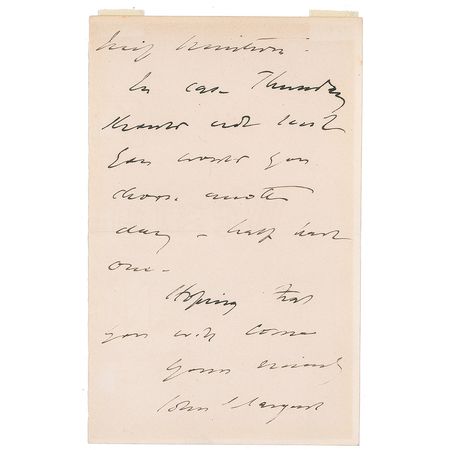 In case Thursday
should not suit
you would you
choose another
day - half past
one -
Hoping that
you will come
yours sincerely
John S Sargent